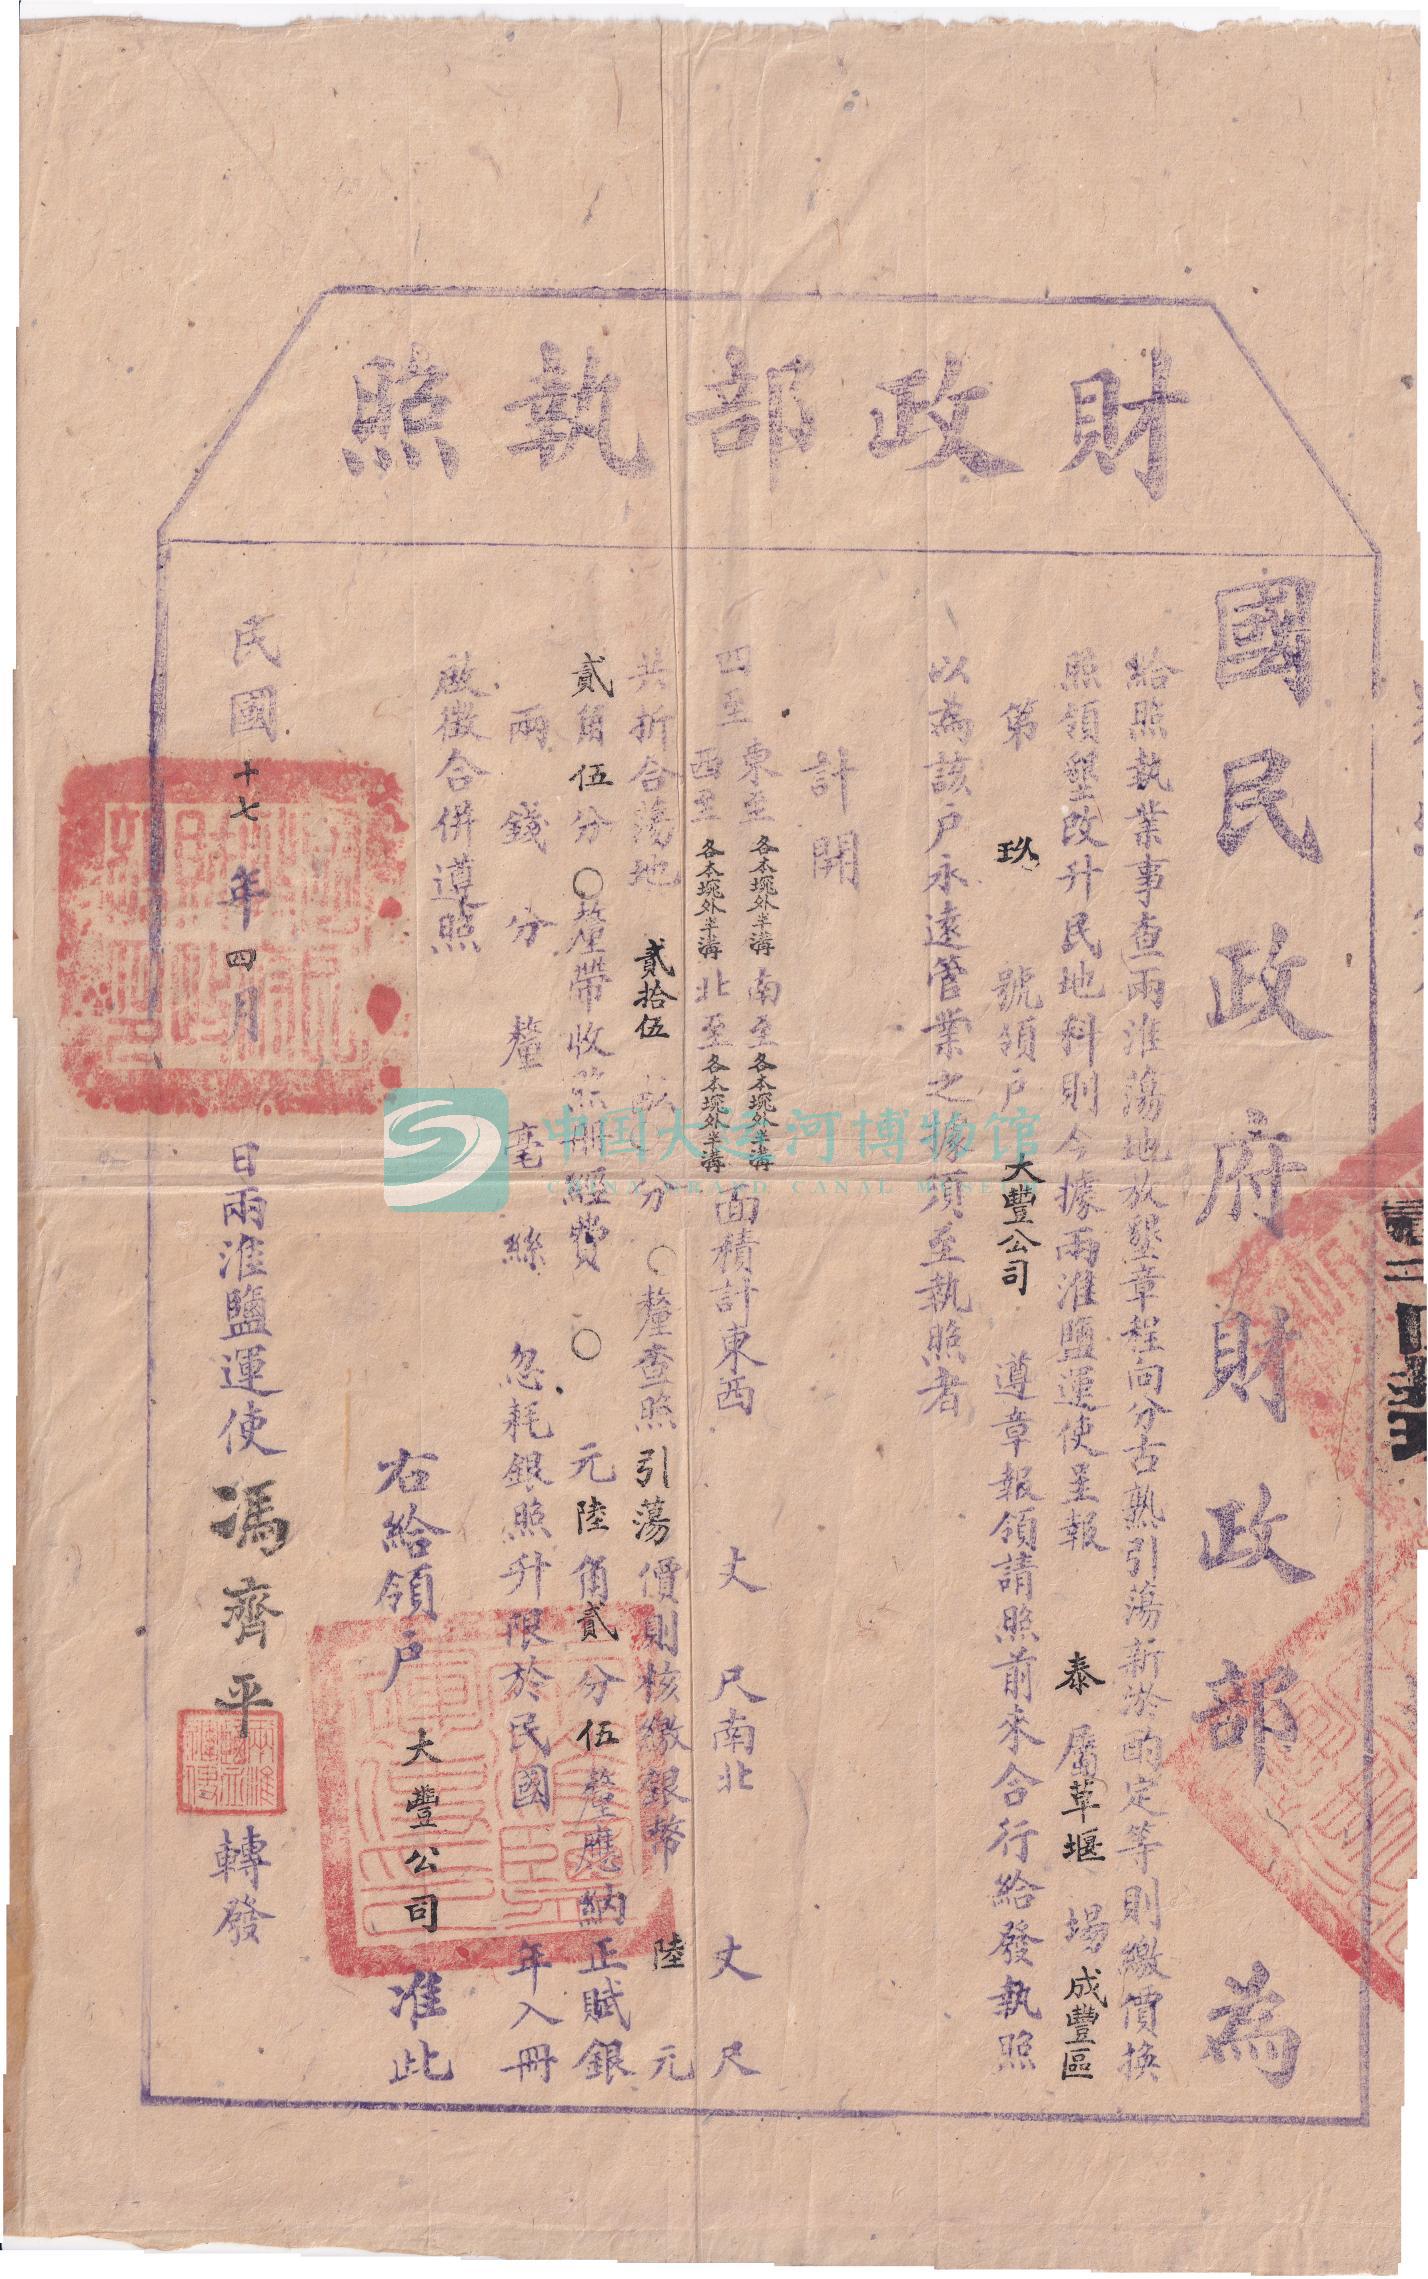 財政部執照
國民政府財政部為
給照執業事查兩淮蕩地放墾章程向分古熟引蕩新淤酌定等則繳價換
照領墾改升民地科則今據兩淮鹽運使呈報 泰 屬草堰 場 成豐區
第 玖 號領戶 大豐公司 遵章報領請照前來合行給發執照
以為該戶永遠管業之據須至執照者
計開
四至 東至各本堍外半溝 南至各本堍外半溝
西至各本堍外半溝 北至各本堍外半溝 面積計東西 丈 尺南北 丈 尺
共折合蕩地 貳拾伍 畝 分 〇釐查照引蕩價則核繳銀幣 陸 元
貳角伍分〇釐帶收照冊經費 〇 元陸角貳分伍釐應納正賦銀
兩 錢 分 釐 毫 絲 忽耗銀照升限於民國 年入冊
啟徵合併遵照
右給領戶 大豐公司 准此
民國十七年四月 日兩淮鹽運使馮齊平 轉發
中国大运河博物馆
CHINA GRAND CANAL MUSEUM